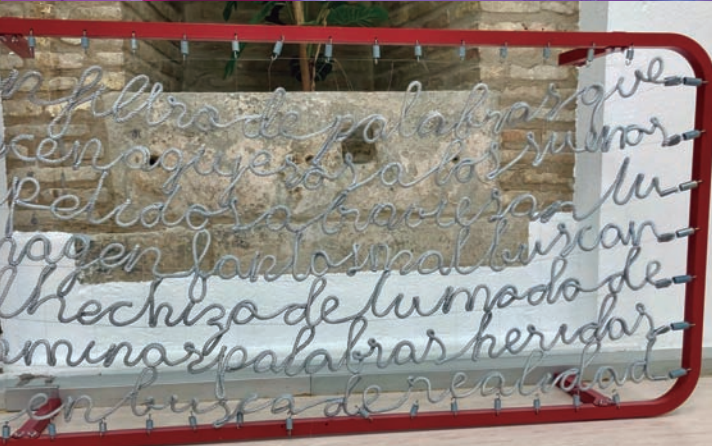 n filtro de palabras que
cen agujeros a los sueños
petidos atraviesan tu
agen fantasmal buscan
l hechizo de tu modo de
minar palabras heridas
en busca de realidad